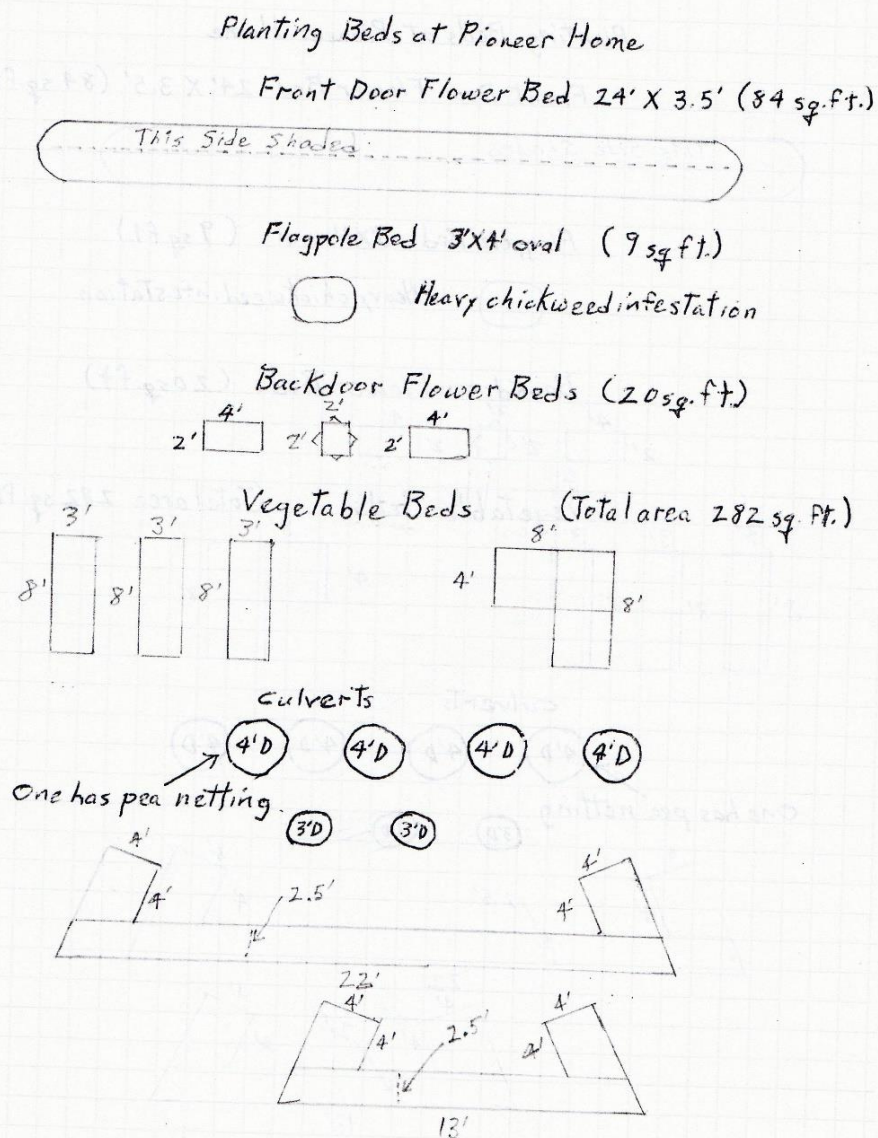 Planting Beds at Pioneer Home
Front Door Flower Bed 24' X 3.5' (84 sq.ft.)
This Side Shaded
Flagpole Bed 3'X4' oval (9 sq ft.)
Heavy chickweed infestation
Backdoor Flower Beds (20 sq.ft.)
4' 2' 4'
2' 2' 2'
Vegetable Beds (Total area 282 sq. ft.)
3' 3' 3' 8'
4'
8' 8' 8' 8'
culverts
4'D 4'D 4'D 4'D
One has pea netting.
3'D 3'D
4' 4'
4' 2.5' 4'
22'
4' 4'
4' 2.5' 4'
13'